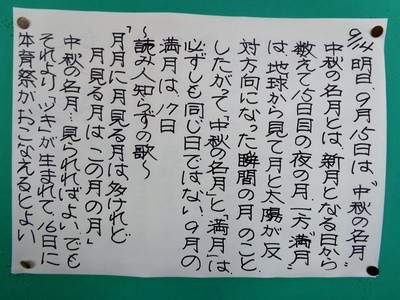 9/14 明日、9月15日は、"中秋の名月"
中秋の名月とは、新月となる日から
数えて15日目の夜の月、一方"満月"
は、地球から見て月と太陽が反
対方向になった瞬間の月のこと
したがって「中秋の名月」と「満月」は、
必ずしも同じ日ではない。9月の
満月は、17日
〜読み人知らずの歌〜
「月月に月見る月は多けれど
月見る月はこの月の月」
中秋の名月…見られればよい、でも
それより、"ツキ"が生まれて、16日に
体育祭がおこなえるとよい